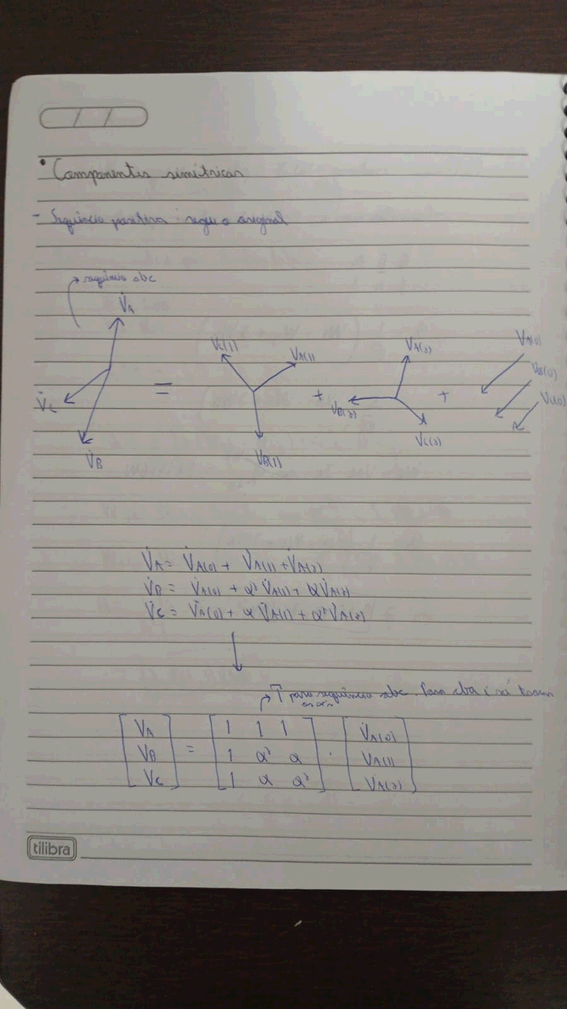 • Componentes simétricas
- Sequência positiva: segue o original
→ sequência abc
V̇A
V̇C
V̇B
=
V̇C(1)
V̇A(1)
V̇B(1)
+
V̇A(2)
V̇B(2)
V̇C(2)
+
V̇A(0)
V̇B(0)
V̇C(0)
V̇A = V̇A(0) + V̇A(1) + V̇A(2)
V̇B = V̇A(0) + α² V̇A(1) + α V̇A(2)
V̇C = V̇A(0) + α V̇A(1) + α² V̇A(2)
→ T para sequência abc. Para cba é só trocar
[V̇A] = [1 1 1] . [V̇A(0)]
[V̇B] [1 α² α] [V̇A(1)]
[V̇C] [1 α α²] [V̇A(2)]
tilibra